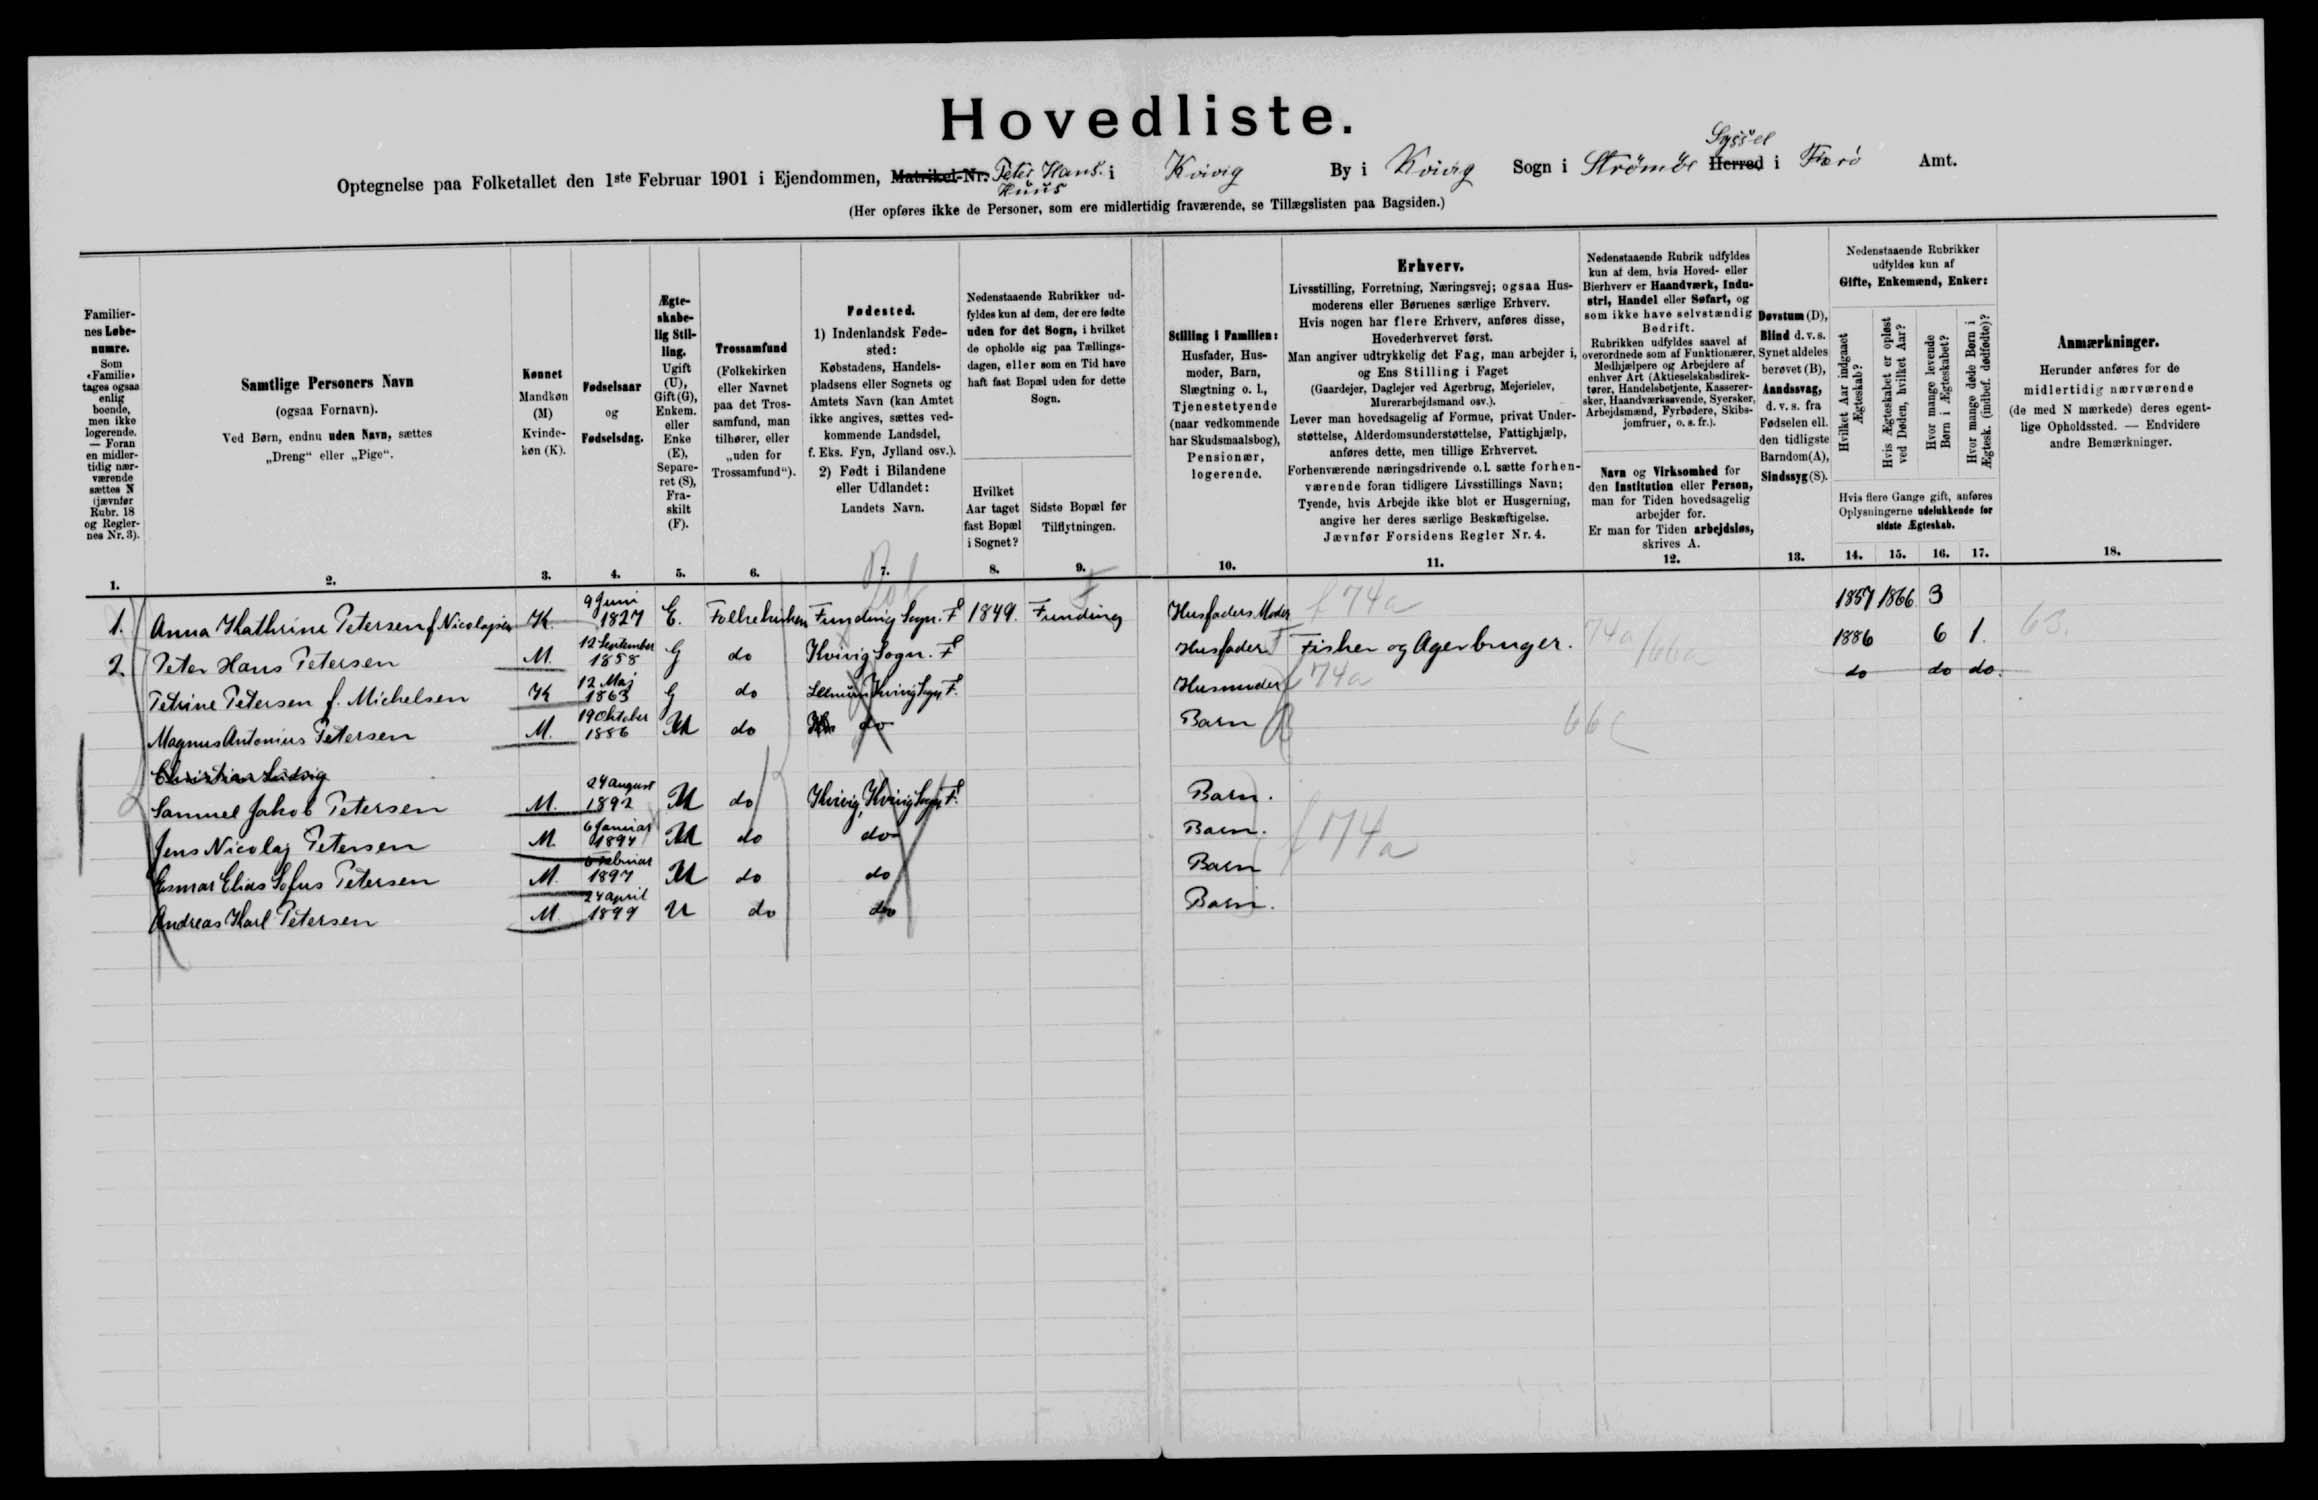 Hovedliste.
Syssel
Optegnelse paa Folketallet den 1ste Februar 1901 i Ejendommen, Matrikel-Nr. Peter Hans. i Kvivig By i Kvivig Sogn i Strömöe Herred i Færö Amt.
Huus
(Her opføres ikke de Personer, som ere midlertidig fraværende, se Tillægslisten paa Bagsiden.)
Familier-
nes Løbe-
numre.
Som
«Familie»
tages ogsaa
enlig
boende,
men ikke
logerende.
— Foran
en midler-
tidig nær-
værende
sættes N
(jævnfør
Rubr. 18
og Regler-
nes Nr. 3).
1.
Samtlige Personers Navn
(ogsaa Fornavn).
Ved Børn, endnu uden Navn, sættes
„Dreng“ eller „Pige“.
2.
Kønnet
Mandkøn
(M)
Kvinde-
køn (K).
3.
Fødselsaar
og
Fødselsdag.
4.
Ægte-
skabe-
lig Stil-
ling.
Ugift
(U),
Gift (G),
Enkem.
eller
Enke
(E),
Separe-
ret (S),
Fra-
skilt
(F).
5.
Trossamfund
(Folkekirken
eller Navnet
paa det Tros-
samfund, man
tilhører, eller
„uden for
Trossamfund“).
6.
Fødested.
1) Indenlandsk Føde-
sted:
Købstadens, Handels-
pladsens eller Sognets og
Amtets Navn (kan Amtet
ikke angives, sættes ved-
kommende Landsdel,
f. Eks. Fyn, Jylland osv.).
2) Født i Bilandene
eller Udlandet:
Landets Navn.
7.
Nedenstaaende Rubrikker ud-
fyldes kun af dem, der ere fødte
uden for det Sogn, i hvilket
de opholde sig paa Tællings-
dagen, eller som en Tid have
haft fast Bopæl uden for dette
Sogn.
Hvilket
Aar taget
fast Bopæl
i Sognet?
8.
Sidste Bopæl før
Tilflytningen.
9.
Stilling i Familien:
Husfader, Hus-
moder, Barn,
Slægtning o. l.,
Tjenestetyende
(naar vedkommende
har Skudsmaalsbog),
Pensionær,
logerende.
10.
Erhverv.
Livsstilling, Forretning, Næringsvej; ogsaa Hus-
moderens eller Børnenes særlige Erhverv.
Hvis nogen har flere Erhverv, anføres disse,
Hovederhvervet først.
Man angiver udtrykkelig det Fag, man arbejder i,
og Ens Stilling i Faget
(Gaardejer, Daglejer ved Agerbrug, Mejerielev,
Murerarbejdsmand osv.).
Lever man hovedsagelig af Formue, privat Under-
støttelse, Alderdomsunderstøttelse, Fattighjælp,
anføres dette, men tillige Erhvervet.
Forhenværende næringsdrivende o.l. sætte forhen-
værende foran tidligere Livsstillings Navn;
Tyende, hvis Arbejde ikke blot er Husgerning,
angive her deres særlige Beskæftigelse.
Jævnfør Forsidens Regler Nr. 4.
11.
Nedenstaaende Rubrik udfyldes
kun af dem, hvis Hoved- eller
Bierhverv er Haandværk, Indu-
stri, Handel eller Søfart, og
som ikke have selvstændig
Bedrift.
Rubrikken udfyldes saavel af
overordnede som af Funktionærer,
Medhjælpere og Arbejdere af
enhver Art (Aktieselskabsdirek-
tører, Handelsbetjente, Kasserer-
sker, Haandværkssvende, Syersker,
Arbejdsmænd, Fyrbødere, Skibs-
jomfruer, o. s. fr.).
Navn og Virksomhed for
den Institution eller Person,
man for Tiden hovedsagelig
arbejder for.
Er man for Tiden arbejdsløs,
skrives A.
12.
Døvstum (D),
Blind d. v. s.
Synet aldeles
berøvet (B),
Aandssvag,
d. v. s. fra
Fødselen ell.
den tidligste
Barndom (A),
Sindssyg (S).
13.
Nedenstaaende Rubrikker
udfyldes kun af
Gifte, Enkemænd, Enker:
Hvilket Aar indgaaet
Ægteskab?
Hvis Ægteskabet er opløst
ved Døden, hvilket Aar?
Hvor mange levende
Børn i Ægteskabet?
Hvor mange døde Børn i
Ægtesk. (indbef. dødfødte)?
Hvis flere Gange gift, anføres
Oplysningerne udelukkende for
sidste Ægteskab.
14. 15. 16. 17.
Anmærkninger.
Herunder anføres for de
midlertidig nærværende
(de med N mærkede) deres egent-
lige Opholdssted. — Endvidere
andre Bemærkninger.
18.
1. Anna Kathrine Petersen f. Nicolajsen K. 9 Juni 1827 E. Folkekirken Funding Sogn. F 1849. Funding Husfaders Moder f 74a 1857 1866 3
2 Peter Hans Petersen M. 12 September 1858 G do Kvivig Sogn. F Husfader F Fisker og Agerbruger. 74a/66a 1886 6 1. 63.
Petrine Petersen f. Michelsen K 12 Maj 1863 G do Kvivig Sogn F. Husmoder f 74a do do do.
Magnus Antonius Petersen M. 19 Oktober 1886 U do do Barn 66c
Christian Ludvig
Samuel Jakob Petersen M. 24 august 1892 U do Kvivig, Kvivig Sogn F. Barn.
Jens Nicolaj Petersen M. 6 Januar 1894 U do do Barn. f 174a
Esmar Elias Sofus Petersen M. 6 Februar 1897 U do do Barn
Andreas Karl Petersen M 24 april 1899 U do do Barn.